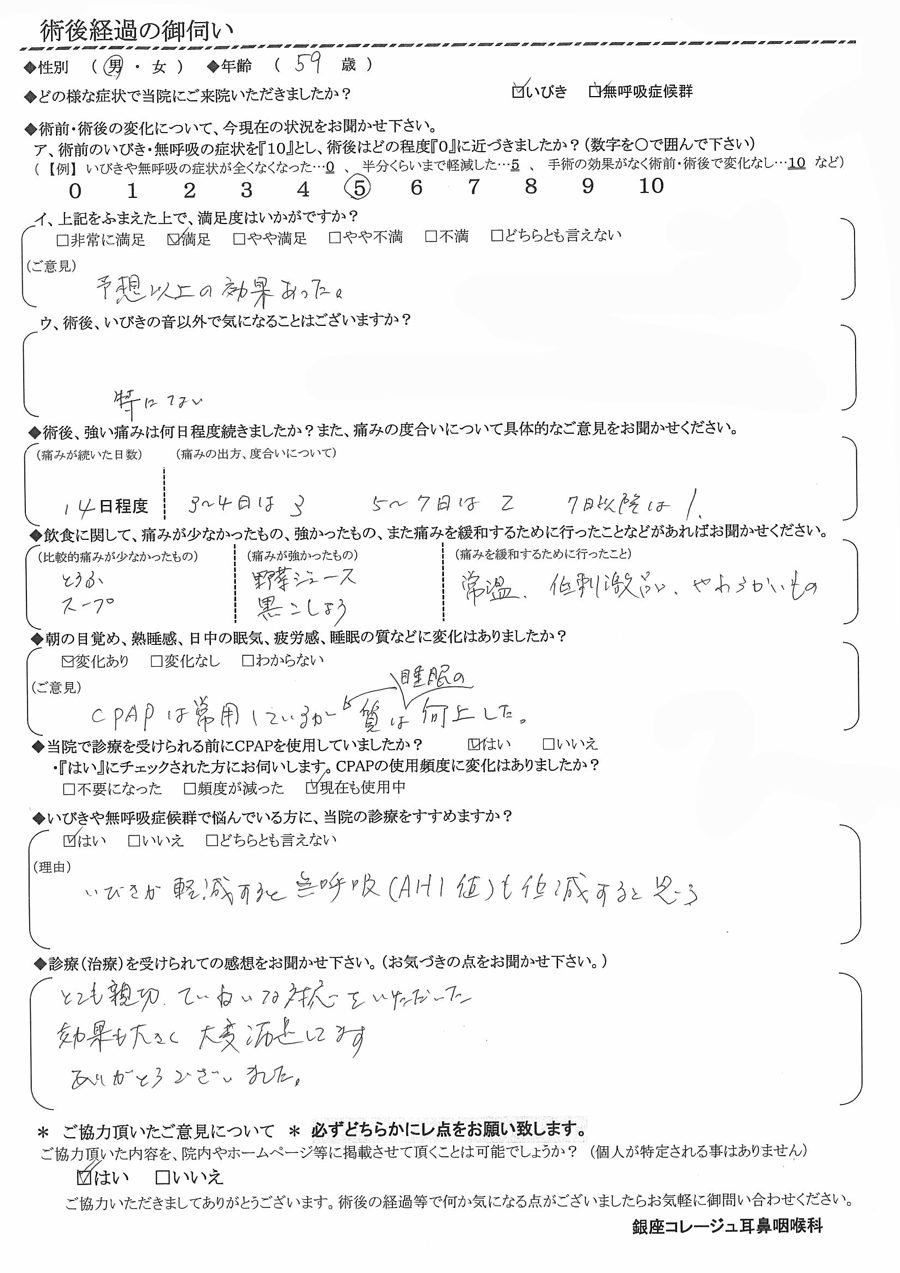 術後経過の御伺い
◆性別 （ 男 ・ 女 ） ◆年齢 （ 59 歳 ）
◆どの様な症状で当院にご来院いただきましたか？ ☑いびき ☑無呼吸症候群
◆術前・術後の変化について、今現在の状況をお聞かせ下さい。
ア、術前のいびき・無呼吸の症状を『10』とし、術後はどの程度『0』に近づきましたか？（数字を〇で囲んで下さい）
（【例】 いびきや無呼吸の症状が全くなくなった…0 、 半分くらいまで軽減した…5 、 手術の効果がなく術前・術後で変化なし…10 など）
0 1 2 3 4 ⑤ 6 7 8 9 10
イ、上記をふまえた上で、満足度はいかがですか？
□非常に満足 ☑満足 □やや満足 □やや不満 □不満 □どちらとも言えない
（ご意見）
予想以上の効果あった。
ウ、術後、いびきの音以外で気になることはございますか？
特にない
◆術後、強い痛みは何日程度続きましたか？また、痛みの度合いについて具体的なご意見をお聞かせください。
（痛みが続いた日数） （痛みの出方、度合いについて）
14日程度 3〜4日は3 5〜7日は2 7日以降は1.
◆飲食に関して、痛みが少なかったもの、強かったもの、また痛みを緩和するために行ったことなどがあればお聞かせください。
（比較的痛みが少なかったもの） （痛みが強かったもの） （痛みを緩和するために行ったこと）
とうふ 野菜ジュース 常温、低刺激品、やわらかいもの
スープ 黒こしょう
◆朝の目覚め、熟睡感、日中の眠気、疲労感、睡眠の質などに変化はありましたか？
☑変化あり □変化なし □わからない
（ご意見） 睡眠の
CPAPは常用しているが質は向上した。
◆当院で診療を受けられる前にCPAPを使用していましたか？ ☑はい □いいえ
・『はい』にチェックされた方にお伺いします。CPAPの使用頻度に変化はありましたか？
□不要になった □頻度が減った ☑現在も使用中
◆いびきや無呼吸症候群で悩んでいる方に、当院の診療をすすめますか？
☑はい □いいえ □どちらとも言えない
（理由）
いびきが軽減すると無呼吸（AHI値）も低減すると思う
◆診療（治療）を受けられての感想をお聞かせ下さい。（お気づきの点をお聞かせ下さい。）
とても親切、ていねいな対応をいただいた
効果も大きく 大変満足してます
ありがとうございました。
＊ ご協力頂いたご意見について ＊ 必ずどちらかにレ点をお願い致します。
ご協力頂いた内容を、院内やホームページ等に掲載させて頂くことは可能でしょうか？ （個人が特定される事はありません）
☑はい □いいえ
ご協力いただきましてありがとうございます。術後の経過等で何か気になる点がございましたらお気軽に御問い合わせください。
銀座コレージュ耳鼻咽喉科